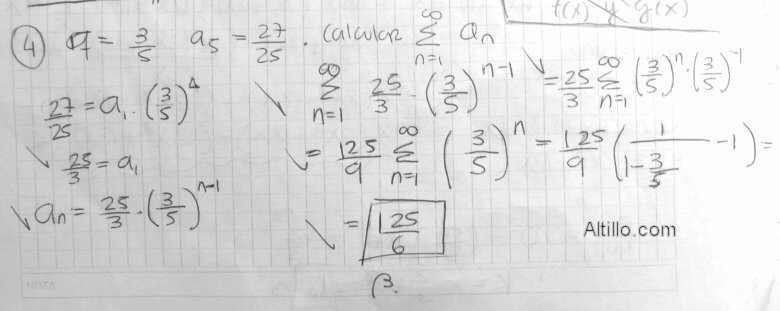 f(x) y g(x)
4 q = 3/5 a₅ = 27/25 . Calcular ∑_{n=1}^{∞} aₙ
27/25 = a₁ . (3/5)⁴
✓ 25/3 = a₁
✓ aₙ = 25/3 . (3/5)^{n-1}
✓ ∑_{n=1}^{∞} 25/3 . (3/5)^{n-1} ✓ = 25/3 ∑_{n=1}^{∞} (3/5)^n . (3/5)^{-1}
✓ = 125/9 ∑_{n=1}^{∞} (3/5)^n = 125/9 (1/(1-3/5) - 1) =
✓ = 125/6
Altillo.com
NOTA